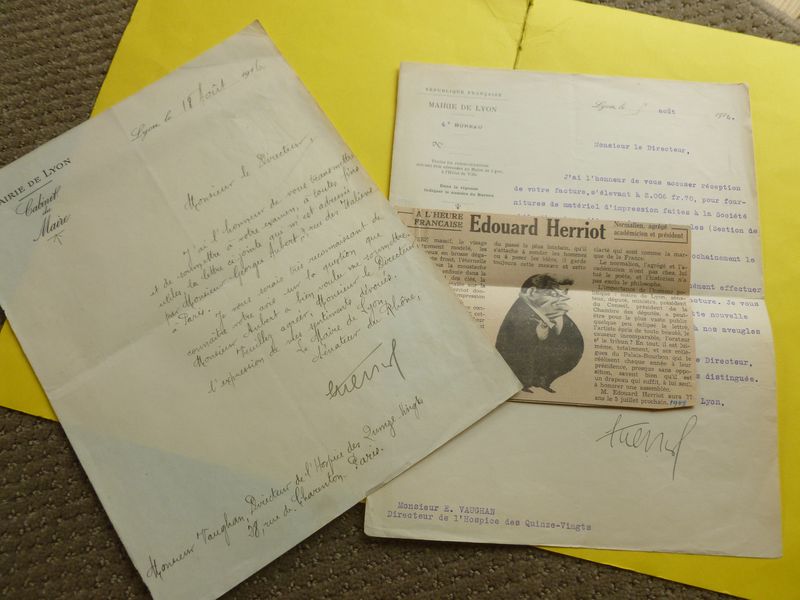 MAIRIE DE LYON
Cabinet
du
Maire
Lyon, le 18 Août 1916
Monsieur le Directeur,
J'ai l'honneur de vous transmettre
et de soumettre à votre examen, à toutes fins
utiles, la lettre ci-jointe qui m'est adressée
par Monsieur Georges Aubert, rue des Italiens
à Paris.
Je vous serais très reconnaissant de
connaître votre avis sur la question que
Monsieur Aubert a bien voulu me soumettre.
Veuillez agréer, Monsieur le Directeur,
l'expression de mes sentiments dévoués.
Le Maire de Lyon,
Sénateur du Rhône,
Herriot
Monsieur Vaughan, Directeur de l'Hospice des Quinze-Vingts
28, rue de Charenton. Paris.
RÉPUBLIQUE FRANÇAISE
MAIRIE DE LYON
4e BUREAU
N°
Lyon, le août 1916.
Monsieur le Directeur,
J'ai l'honneur de vous accuser réception
de votre facture, s'élevant à 2.006 fr.70, pour four-
nitures de matériel d'impression faites à la Société
les (Section de
chainement le
ment effectuer
cture. Je vous
te nouvelle
à nos aveugles
Directeur,
s distinguée.
Lyon,
Herriot
Monsieur E. VAUGHAN
Directeur de l'Hospice des Quinze-Vingts
A L'HEURE
FRANÇAISE
Edouard Herriot
Normalien, agrégé
académicien et président
massif, le visage
du passé le plus lointain, qu'il
s'attache à sonder les hommes
ou à peser les idées, il garde
toujours cette mesure et cette
clarté qui sont comme la marque
de la France.
Le normalien, l'agrégé et l'a-
cadémicien n'ont pas chez lui
tué le poète, et l'historien n'a
pas exclu le philosophe.
L'importance de l'homme
: maire de Lyon, séna-
teur, député, ministre, président
du Conseil, président de la
Chambre des députés, a peut-
être pour le plus vaste public
quelque peu éclipsé le lettré,
l'artiste épris de toute beauté, le
causeur incomparable, l'orateur
et le tribun ? En tout, il est lui-
même, totalement, et ses collè-
gues du Palais-Bourbon qui le
réélisent chaque année à leur
présidence, presque sans oppo-
sition, savent bien qu'il est
un drapeau qui suffit, à lui seul, à
honorer une assemblée.
M. Edouard Herriot aura 77
ans le 5 juillet prochain.